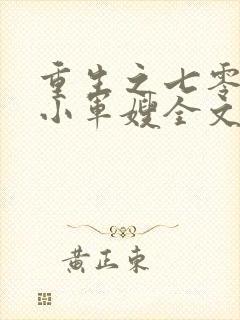 重生之七零
小军嫂全文
黄正东